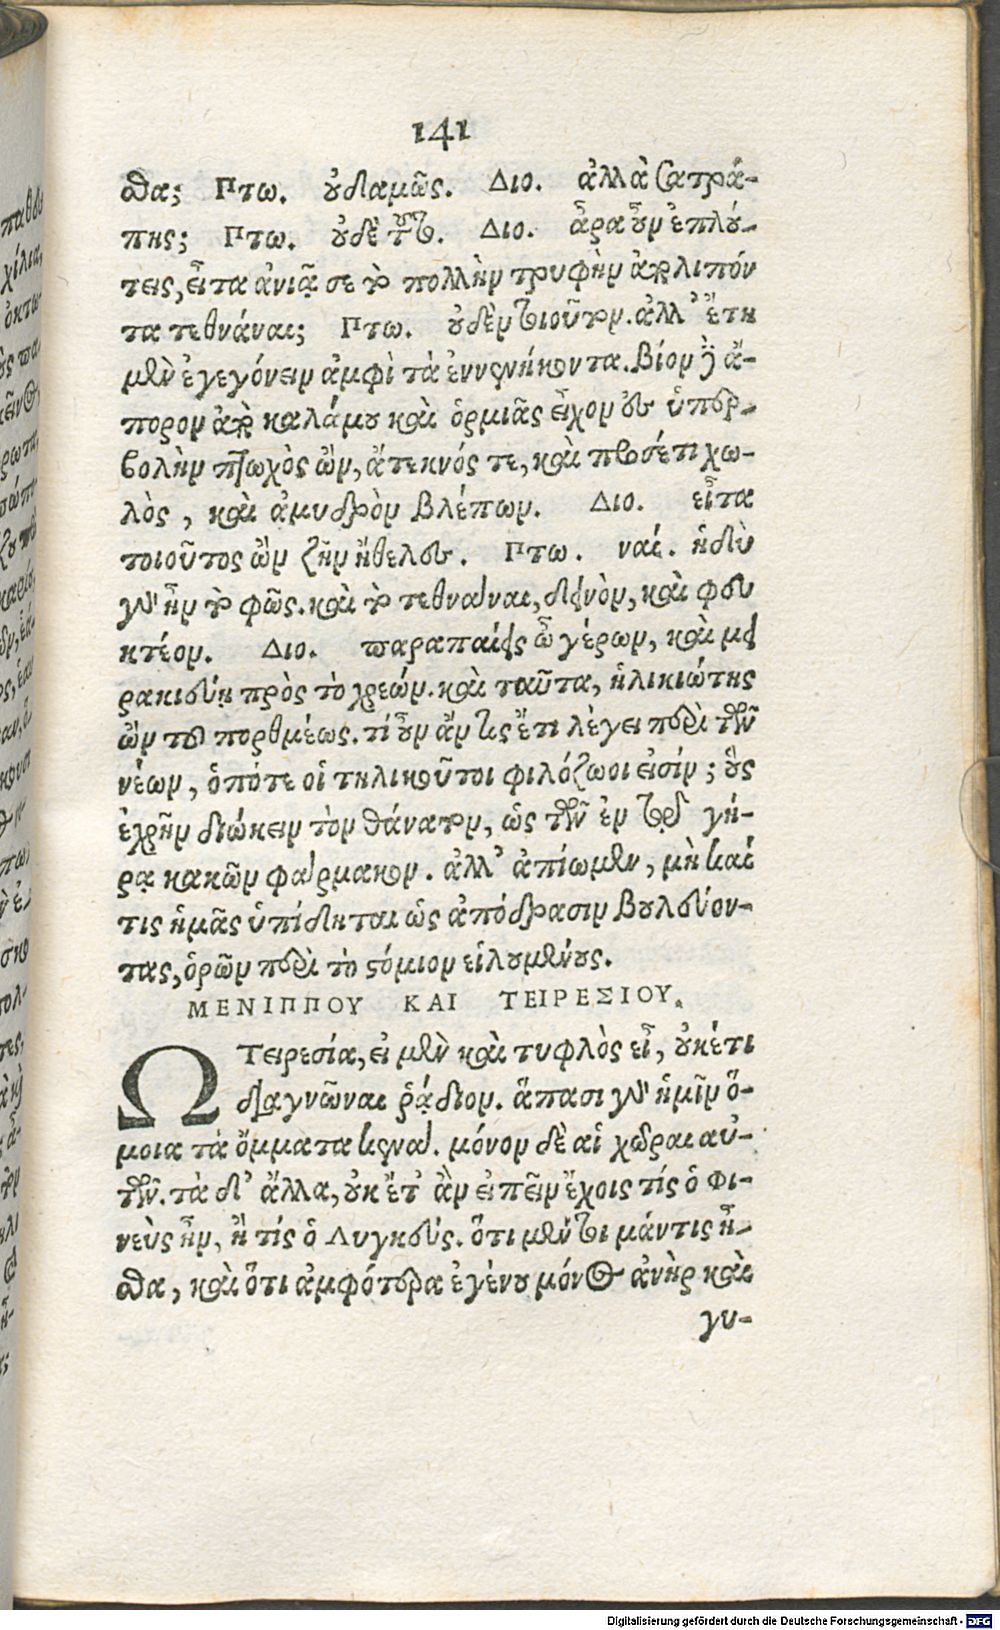 141
σθα; Πτω. οὐδαμῶς. Διο. ἀλλὰ σατρά-
πης; Πτω. οὐδὲ τοῦτο. Διο. ἆρα οὖν ἐπλού-
τεις, εἶτα ἀνιᾷ σε τὸ πολλὴν τρυφὴν ἀπολιπόν
τα τεθνάναι; Πτω. οὐδὲν τοιοῦτον. ἀλλ' ἔτη
μὲν ἐγεγόνειν ἀμφὶ τὰ ἐννενήκοντα. βίον δὲ ἄ-
πορον ἀπὸ καλάμου καὶ ὁρμιᾶς εἶχον εἰς ὑπερ-
βολὴν πτωχὸς ὢν, ἄτεκνός τε, καὶ προσέτι χω-
λὸς, καὶ ἀμυδρὸν βλέπων. Διο. εἶτα
τοιοῦτος ὢν ζῆν ἤθελες. Πτω. ναί. ἡδὺ
γὰρ ἦν τὸ φῶς. καὶ τὸ τεθνάναι, δεινὸν, καὶ φευ
κτέον. Διο. παραπαίεις ὦ γέρων, καὶ μει
ρακιεύῃ πρὸς τὸ χρεών. καὶ ταῦτα, ἡλικιώτης
ὢν τοῦ πορθμέως. τί οὖν ἄν τις ἔτι λέγει περὶ τῶν
νέων, ὁπότε οἱ τηλικοῦτοι φιλόζωοι εἰσίν; οὓς
ἐχρῆν διώκειν τὸν θάνατον, ὡς τῶν ἐν τῷ γή-
ρᾳ κακῶν φάρμακον. ἀλλ' ἀπίωμεν, μὴ καί
τις ἡμᾶς ὑπίδηται ὡς ἀπόδρασιν βουλεύον-
τας, ὁρῶν περὶ τὸ στόμιον εἱλουμένους.
ΜΕΝΙΠΠΟΥ ΚΑΙ ΤΕΙΡΕΣΙΟΥ.
Ω Τειρεσία, εἰ μὲν καὶ τυφλὸς εἶ, οὐκέτι
διαγνῶναι ῥᾴδιον. ἅπασι γὰρ ἡμῖν ὅ-
μοια τὰ ὄμματα κενά. μόνον δὲ αἱ χῶραι αὐ-
τῶν. τὰ δ' ἄλλα, οὐκ ἔτ' ἂν εἰπεῖν ἔχοις τίς ὁ Φι-
νεὺς ἦν, ἢ τίς ὁ Λυγκεύς. ὅτι μέν τοι μάντις ἦ-
σθα, καὶ ὅτι ἀμφότερα ἐγένου μόνος ἀνὴρ καὶ
γυ-
Digitalisierung gefördert durch die Deutsche Forschungsgemeinschaft - DFG